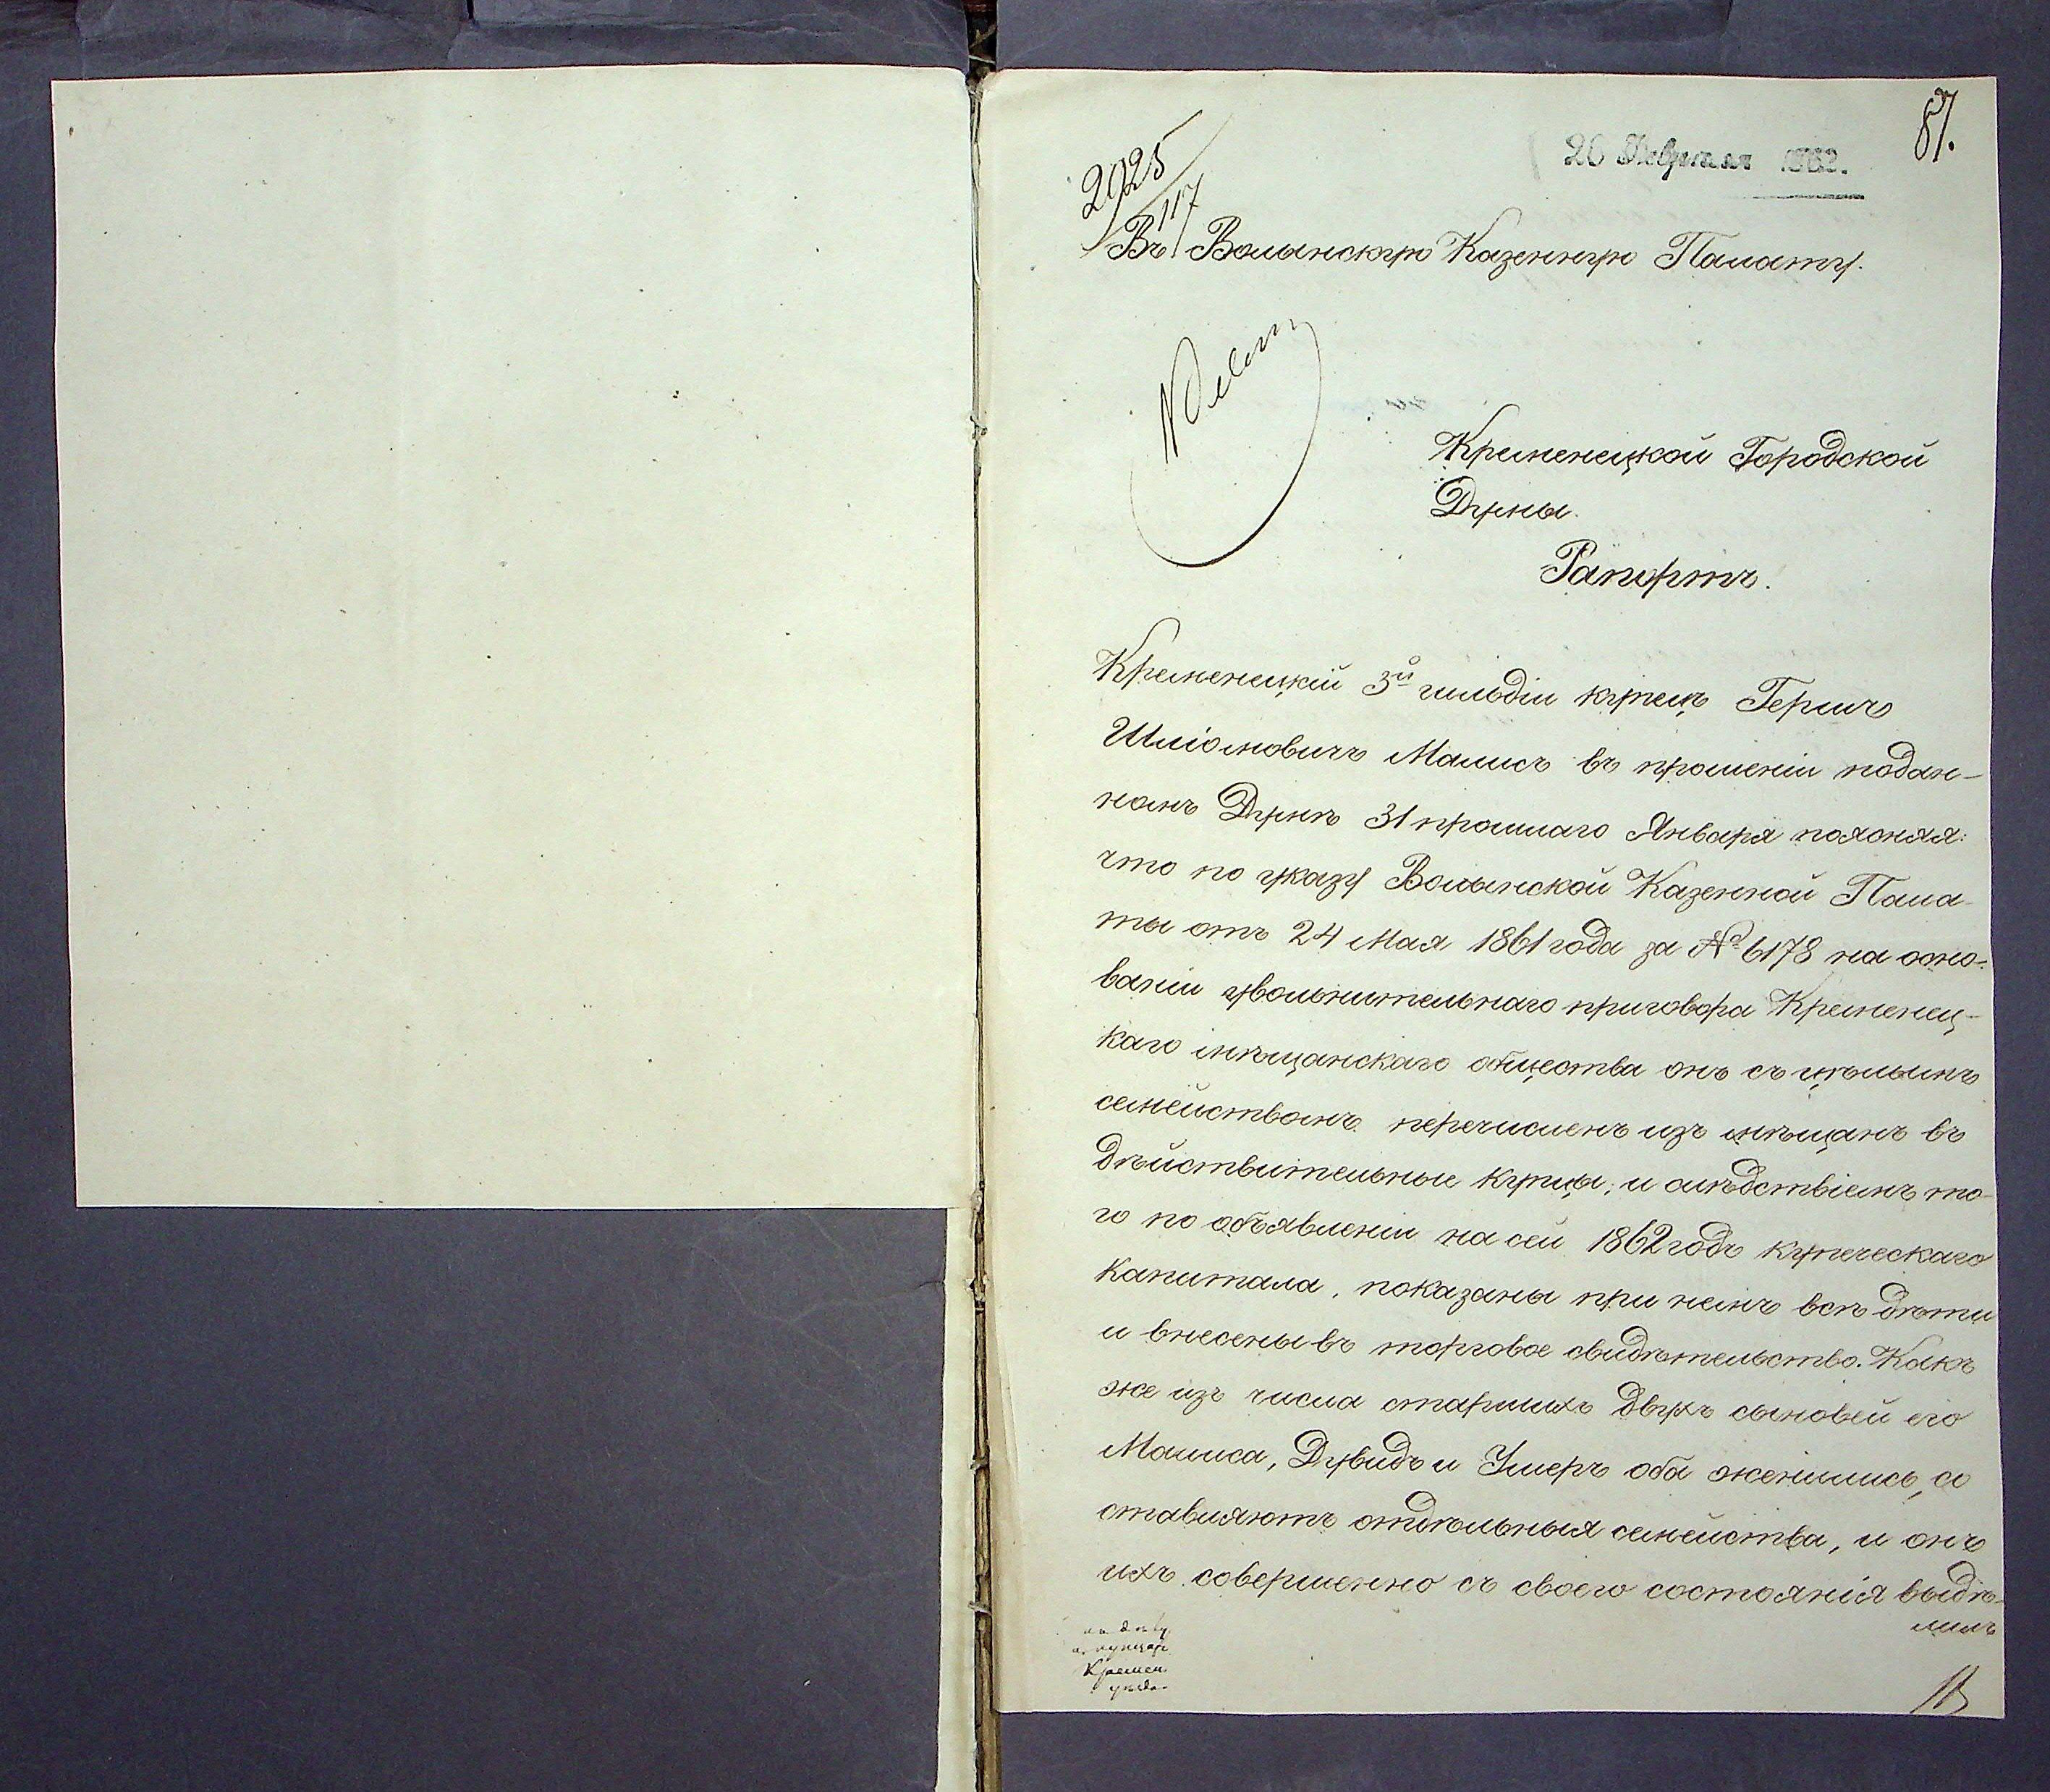 87.
26 Февраля 1862.
2025
117
Въ Волынскую Казенную Палату.
Кременецкой Городской
Думы.
Рапортъ.
Кременецкій 3й гильдіи купецъ Гершъ
Шліомовичъ Малисъ въ прошеніи подан-
номъ Думѣ 31 прошлаго Января поясняя:
что по указу Волынской Казенной Пала-
ты отъ 24 Мая 1861 года за № 6178 на осно-
ваніи увольнительнаго приговора Кременец-
каго мѣщанскаго общества онъ съ цѣлымъ
семействомъ перечисленъ изъ мѣщанъ въ
дѣйствительные купцы; и слѣдствіемъ то-
го по объявленіи на сей 1862 годъ купеческаго
капитала, показаны при немъ всѣ дѣти
и внесены въ торговое свидѣтельство. Какъ
же изъ числа старшихъ двухъ сыновей его
Малиса, Дувидъ и Ушеръ оба женились, со
ставляютъ отдѣльныя семейства, и онъ
ихъ совершенно съ своего состоянія выдѣ-
лилъ
Кремен.